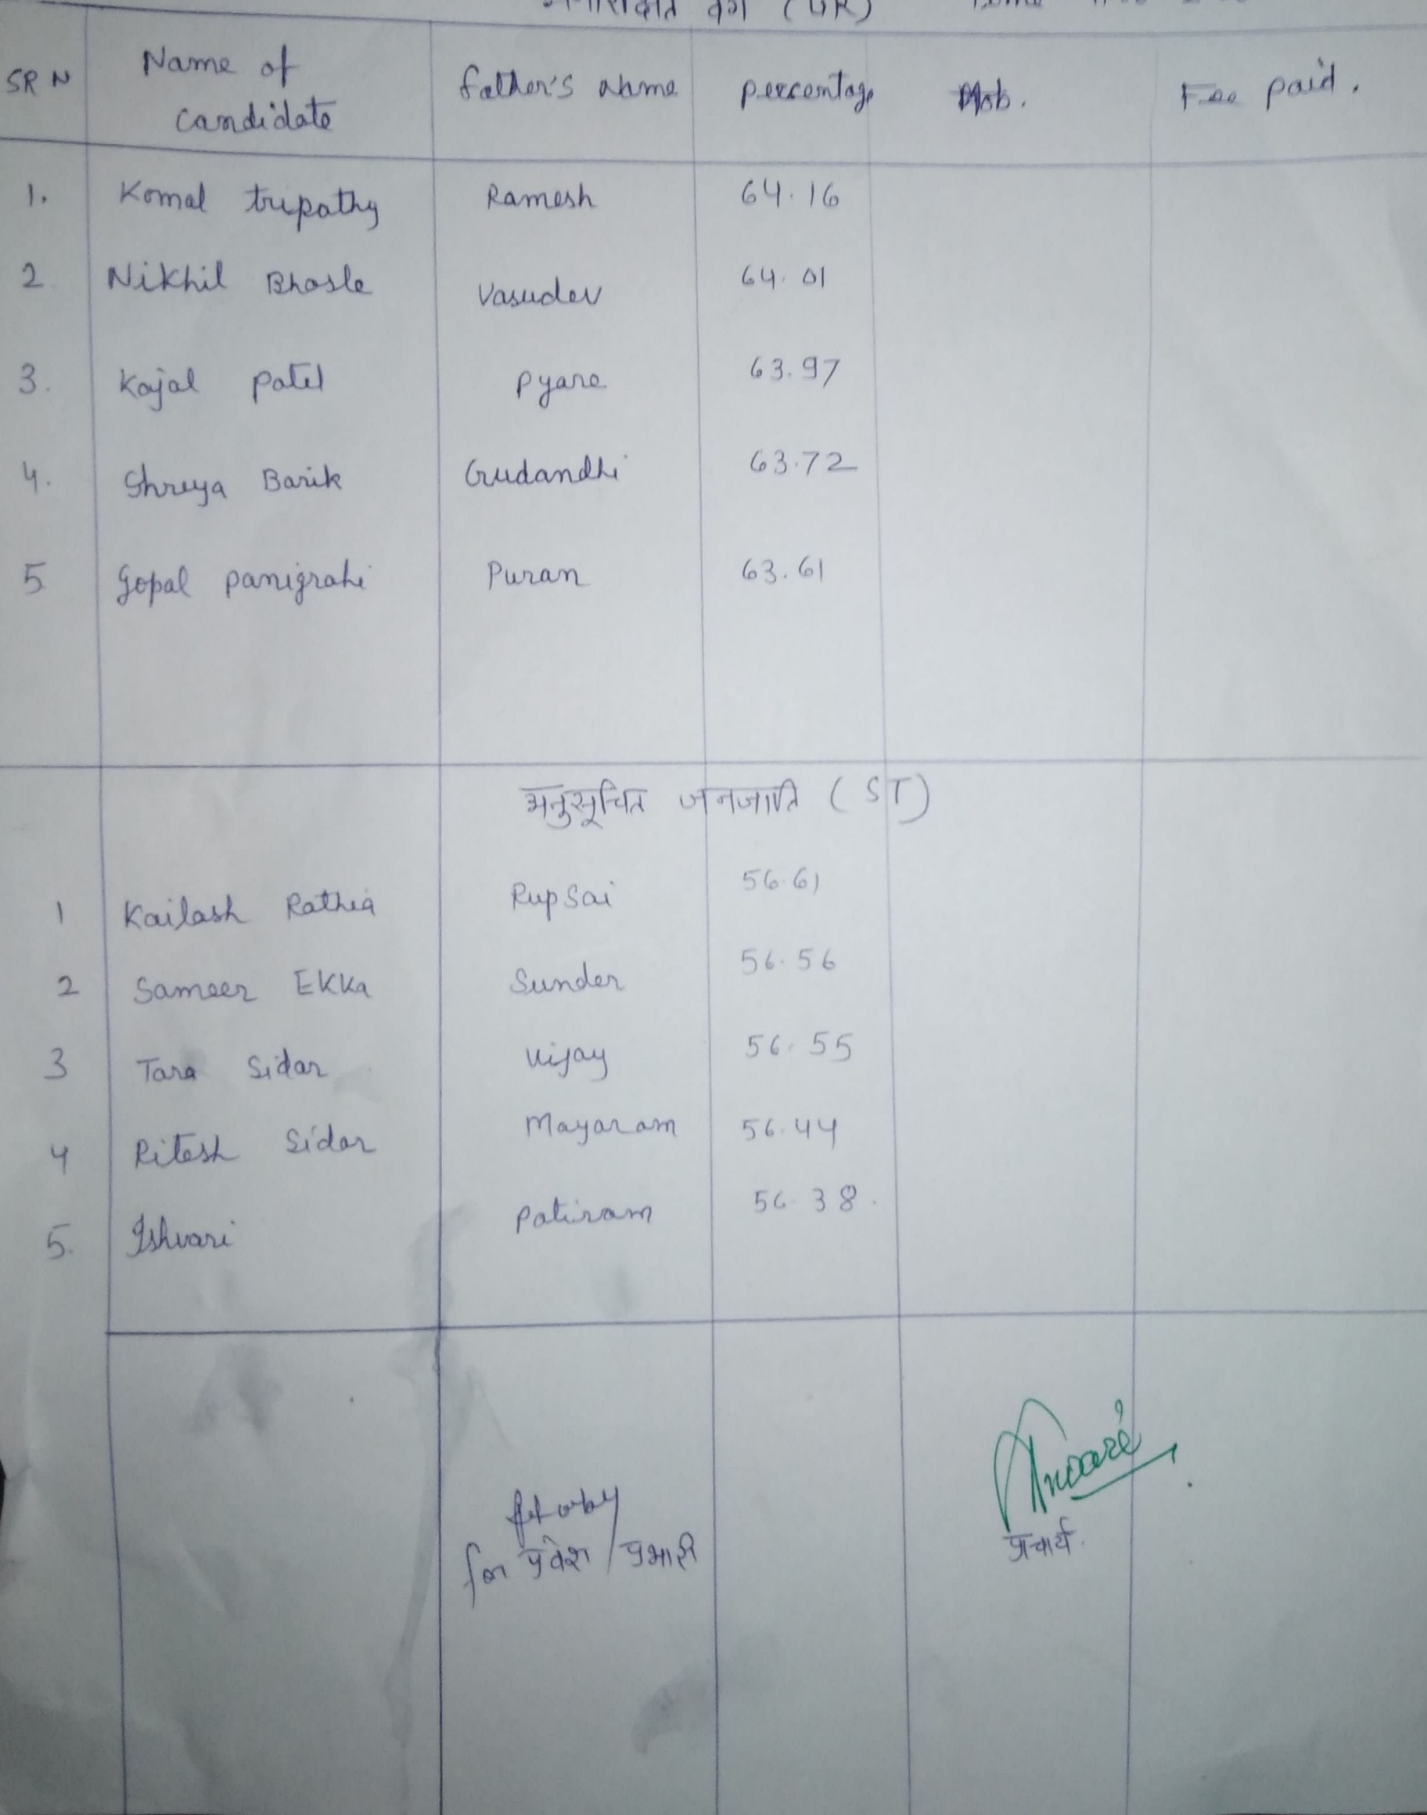 (UR)
SR N Name of candidate Father's Name percentage Mob. Fee paid.
1. Komal tripathy Ramesh 64.16
2 Nikhil Bhosle Vasudev 64.01
3. Kajal patel Pyare 63.97
4. Shreya Barik Gudandhi 63.72
5 Gopal panigrahi Puran 63.61
अनुसूचित जनजाति (ST)
1 Kailash Rathia Rupsai 56.61
2 Sameer EKKa Sunder 56.56
3 Tara Sidar Vijay 56.55
4 Ritesh Sidar Mayaram 56.44
5. Ishvari Patiram 56.38.
for प्रवेश / प्रभारी
प्राचार्य.